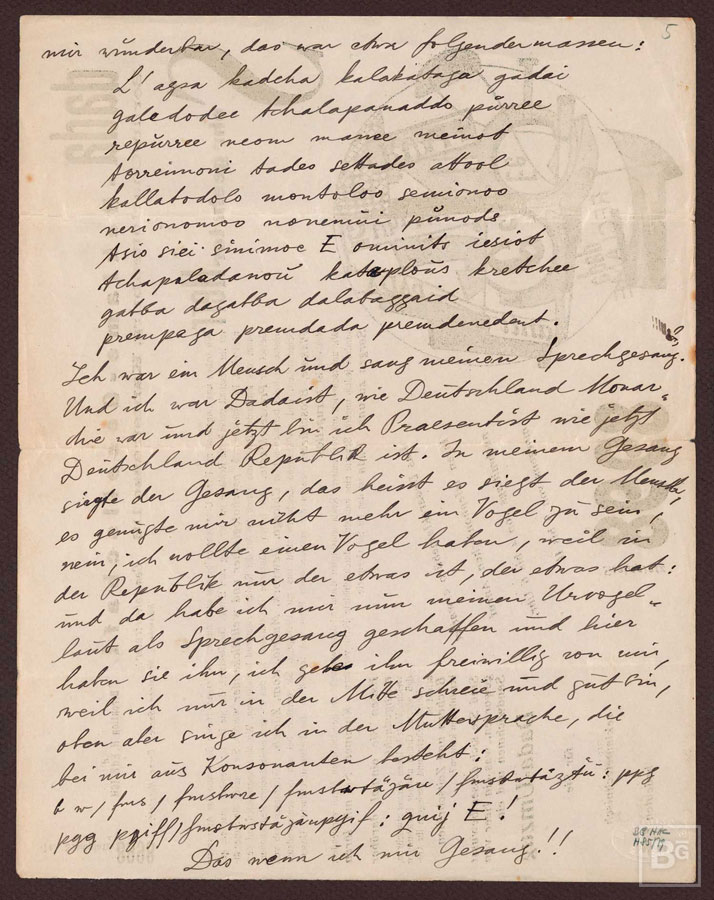 5
mir wunderbar, das war etwa folgendermassen:
L'agsa kadcha kalakataga gadai
galedodee tchalapanaddo pürree
repürree neom manee meinot
torreimoni tades settades attool
kallatodolo montoloo semionoo
nerionomoo nonemüi pünods
Asio siei sinimoe E ominits iesiot
tchapaladanoü kataploüs kretchee
gatba dagatba dalabaggaid
prempaga premdada premdenedent.
Ich war ein Mensch und sang meinen Sprechgesang.
Und ich war Dadaist, wie Deutschland Monar=
chie war und jetzt bin ich Praesentist wie jetzt
Deutschland Republik ist. In meinem Gesang
siegte der Gesang, das heisst es siegt der Mensch,
es genügte mir nicht mehr ein Vogel zu sein,
nein, ich wollte einen Vogel haben, weil in
der Republik nur der etwas ist, der etwas hat:
und da habe ich mir nun meinen Urvogel=
laut als Sprechgesang geschaffen und hier
haben sie ihn, ich gebe ihn freiwillig von mir,
weil ich nur in der Mitte schreie und gut bin,
oben aber singe ich in der Muttersprache, die
bei mir aus Konsonanten besteht:
b w / fms / fmsbwre / fmsbwtäzäu / fmsbwtäzäü: pgg
pgg pgiff / fmsbwtäzäupgif: guij E!
Das nenn ich mir Gesang!!
BG